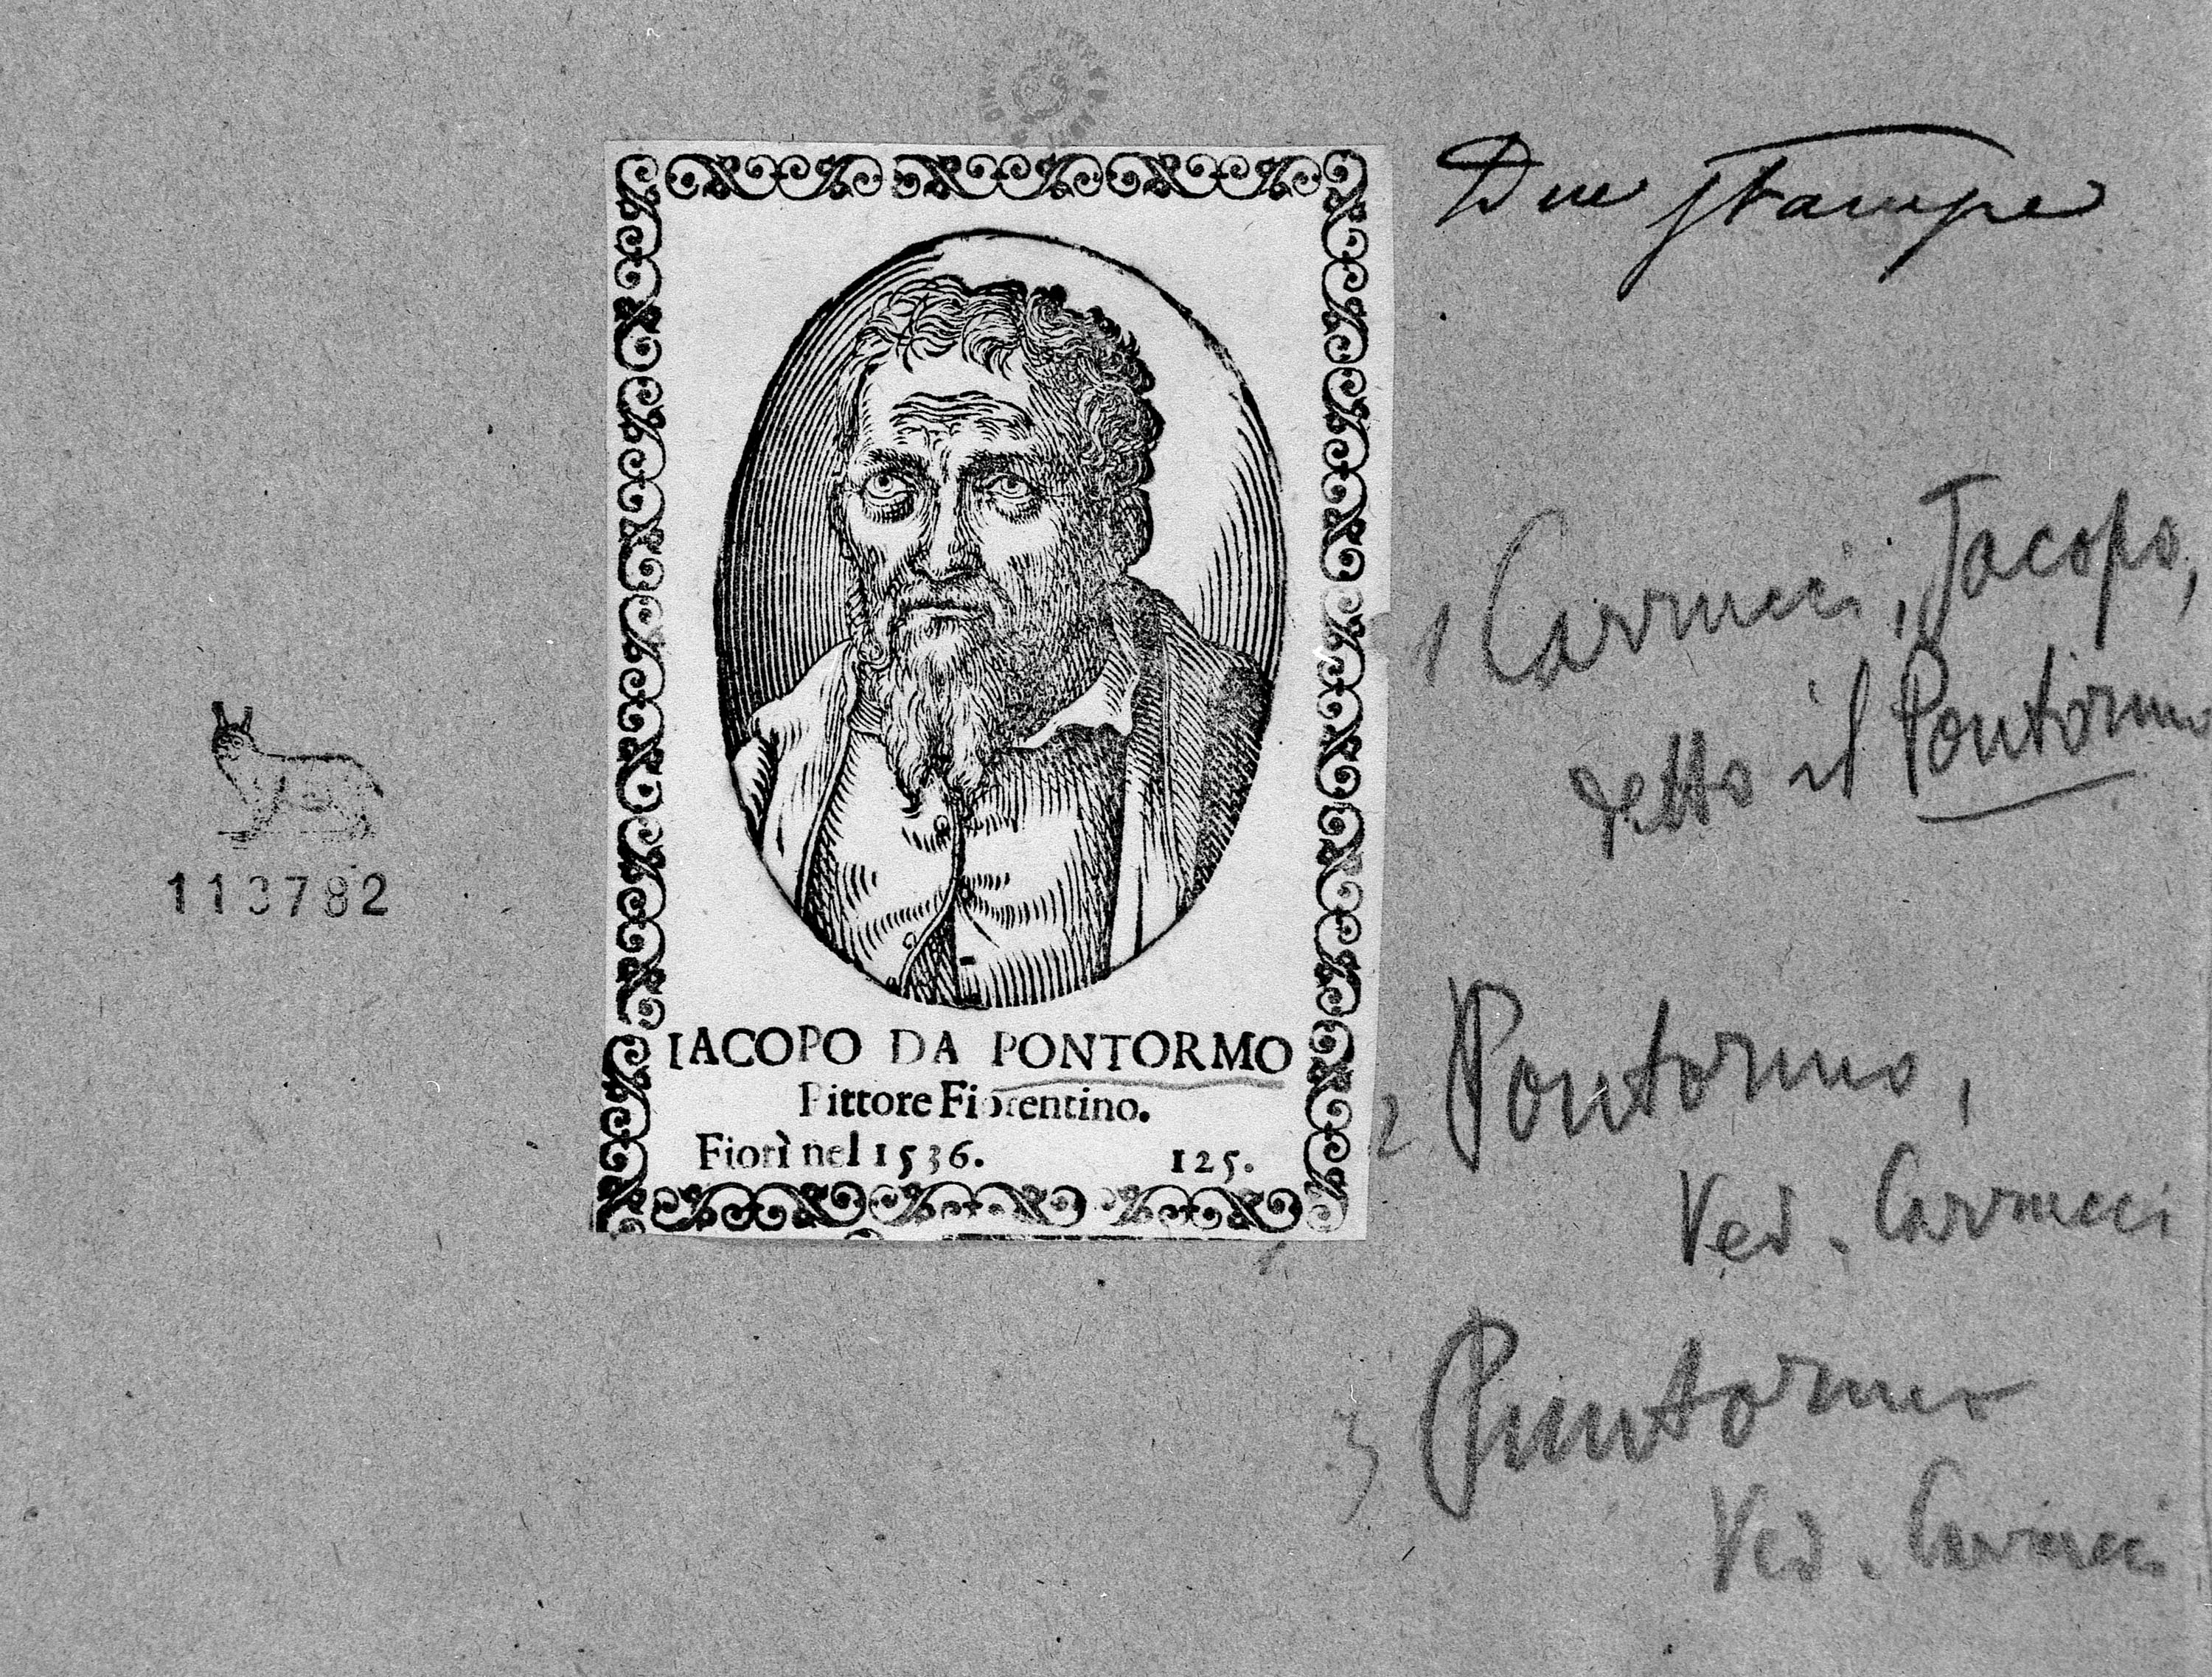 Due stampe
IACOPO DA PONTORMO
Pittore Fiorentino.
Fiorì nel 1536. 125.
113782
1 Carrucci, Jacopo,
detto il Pontormo
2 Pontormo,
Ved. Carrucci
3 Puntormo
Ved. Carrucci